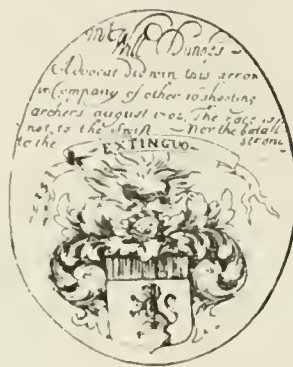 Mr Will Dundas
Advocat did win this arrow
in Company of other 10 shooting
archers august 1702. The race is
not to the Swift Nor the batall
to the strong
EXTINGUO